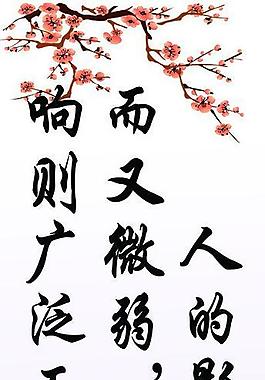 人的影
而又微弱，
响则广泛